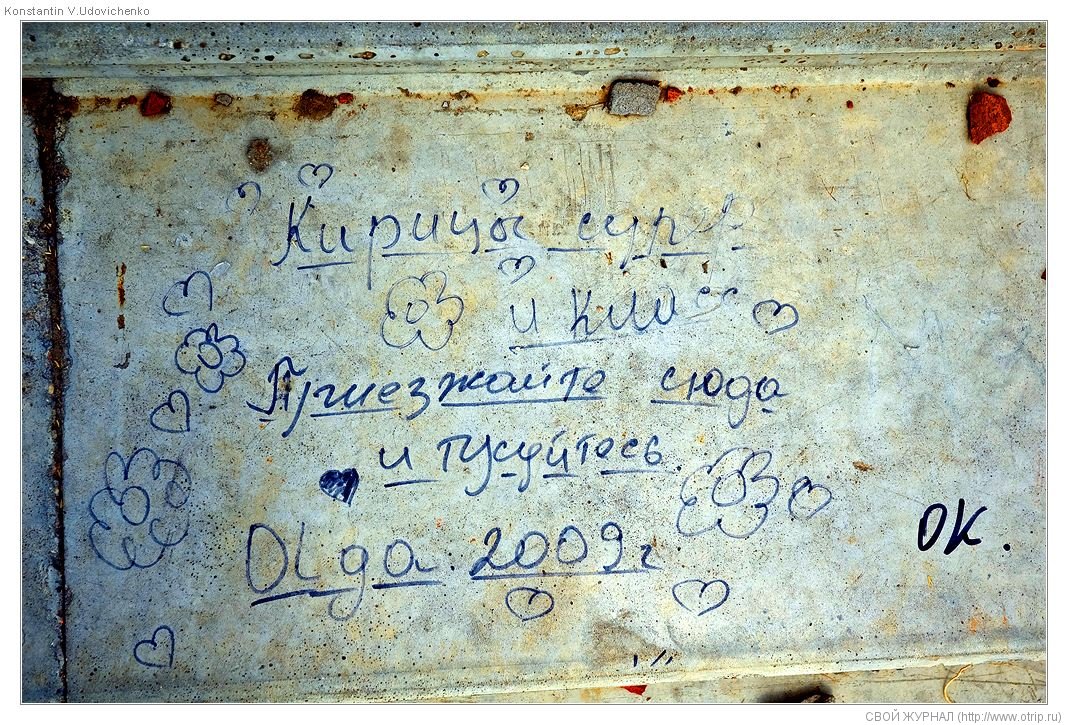 Konstantin V.Udovichenko
Кирицы супер
и класс
Приезжайте сюда
и тусуйтесь.
OLga 2009г
OK.
СВОЙ ЖУРНАЛ (http://www.otrip.ru)